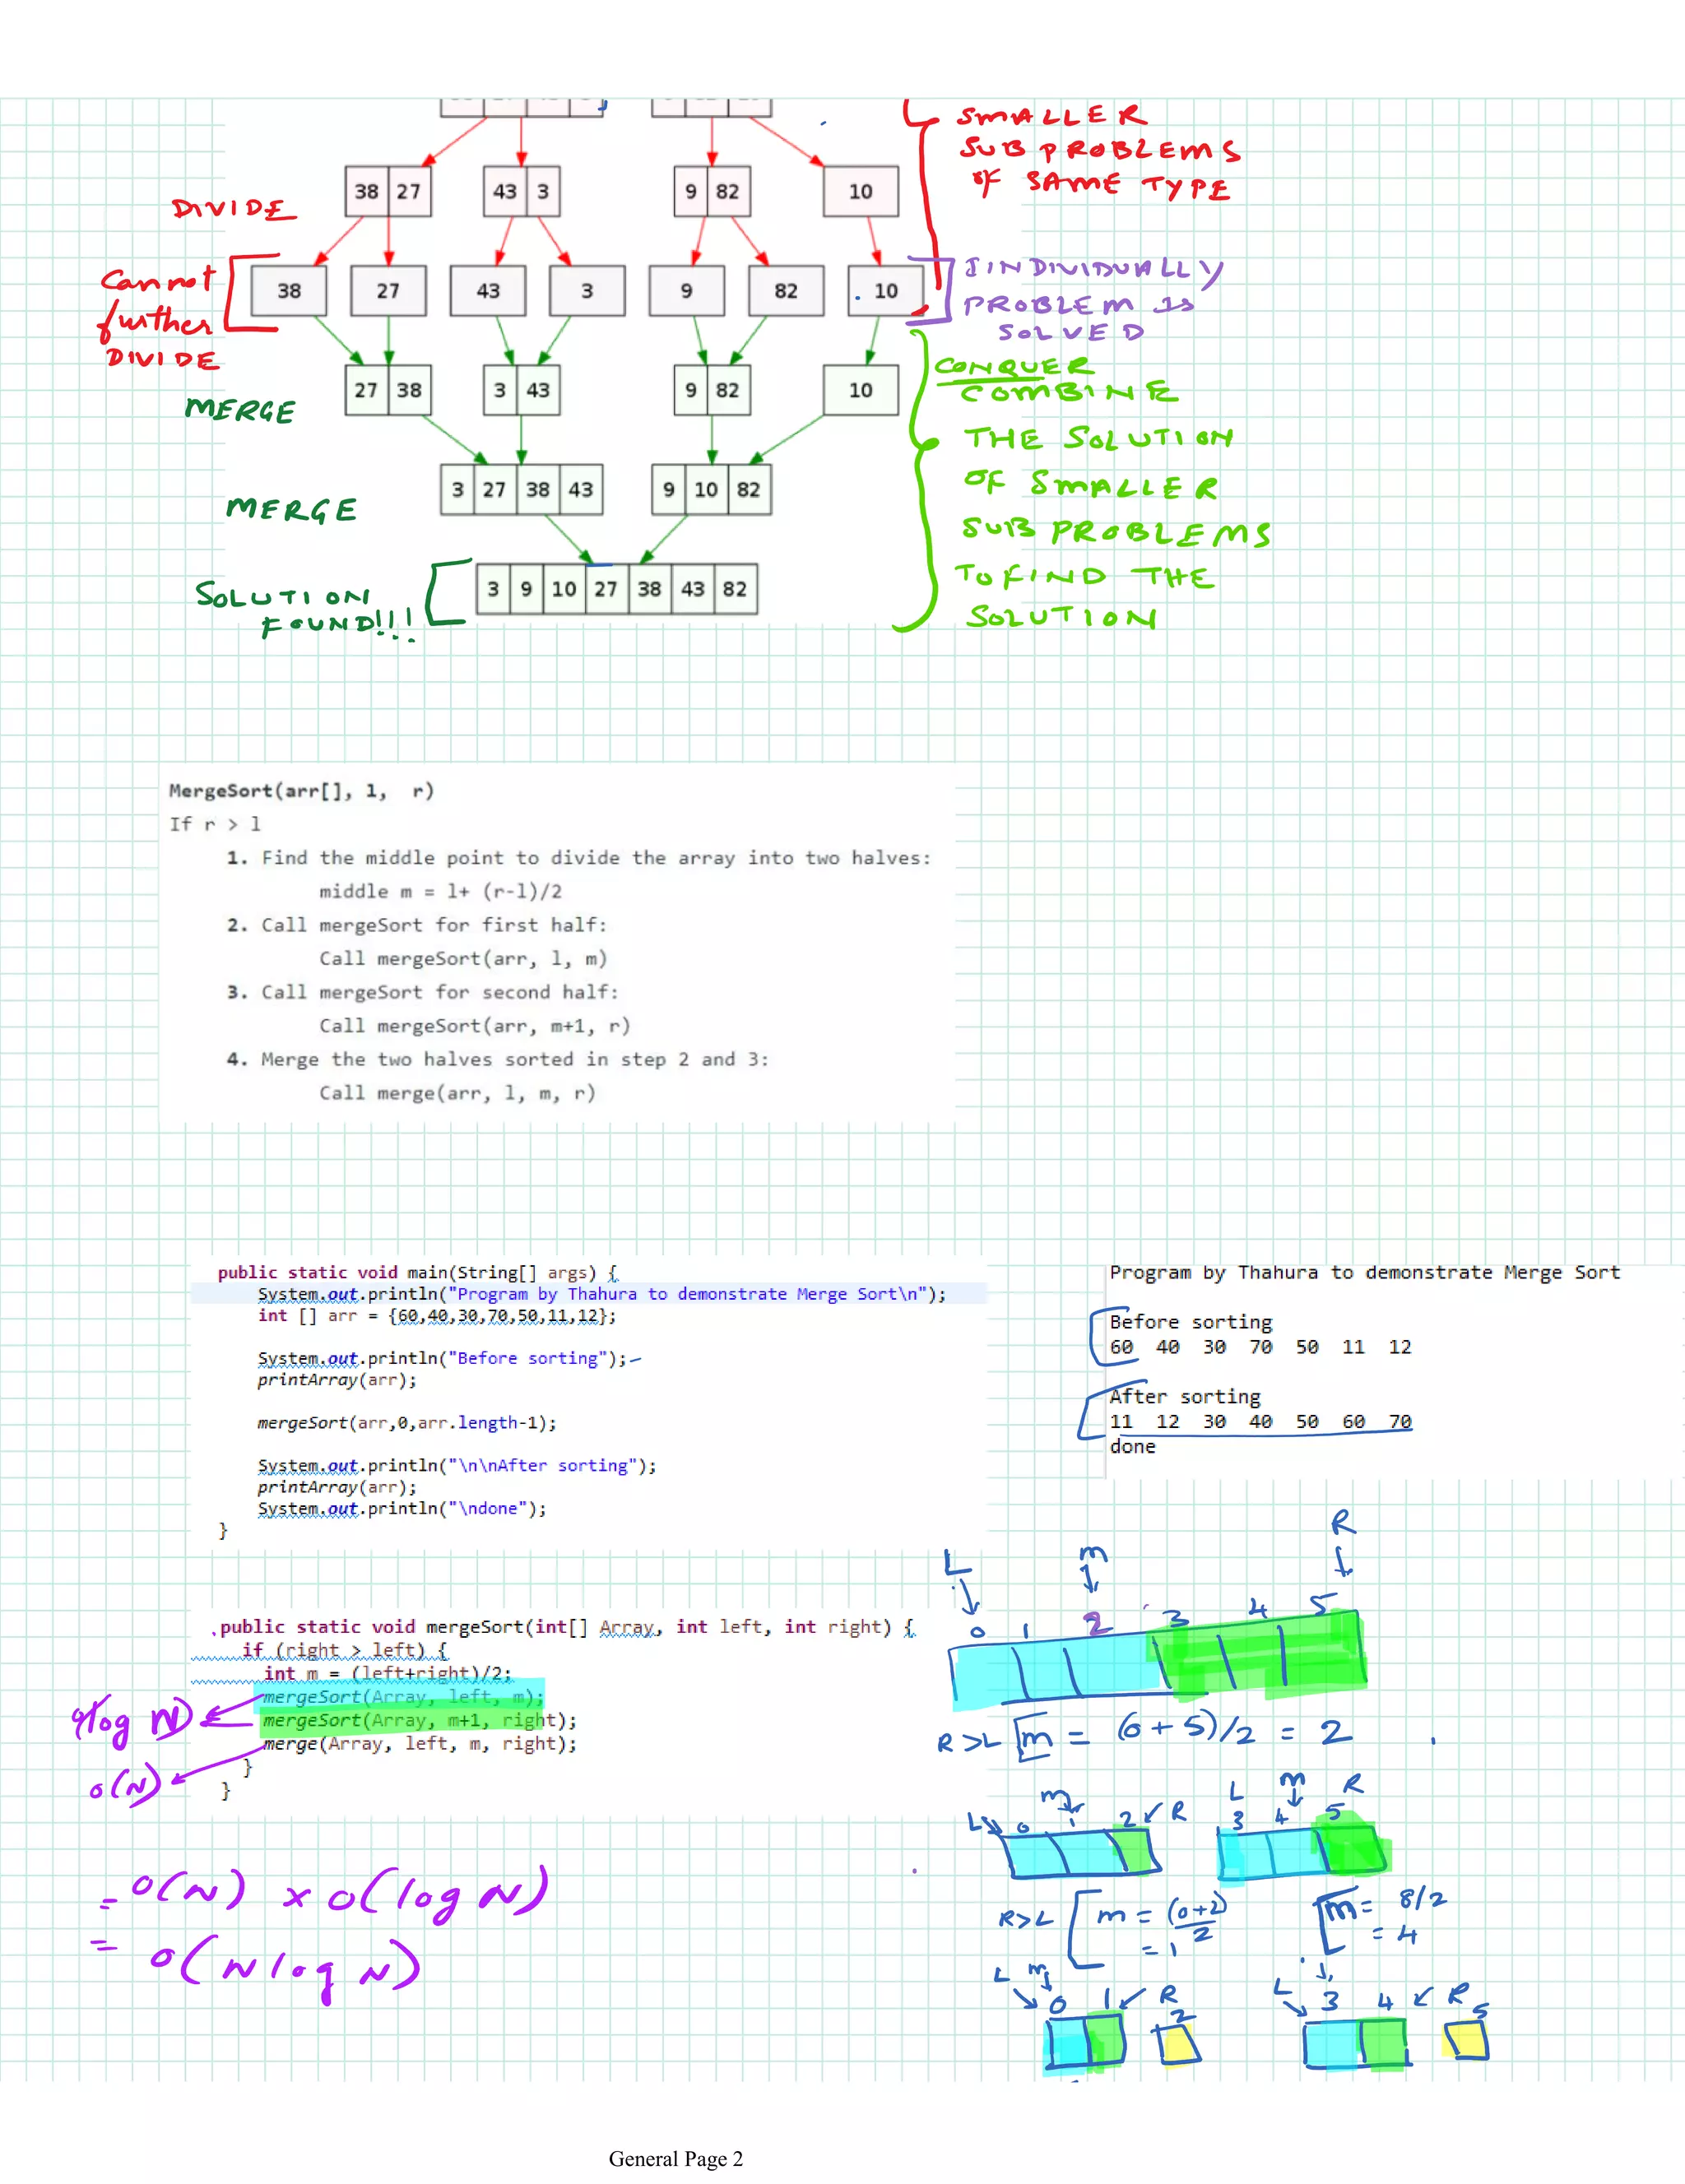 SMALLER
SUB PROBLEMS
OF SAME TYPE
38 27
43 3
9 82
10
DIVIDE
Cannot
further
DIVIDE
38
27
43
3
9
82
10
IINDIVIDUALLY
PROBLEM IS
SOLVED
27 38
3 43
9 82
10
MERGE
CONQUER
COMBINE
THE SOLUTION
OF SMALLER
SUB PROBLEMS
TO FIND THE
SOLUTION
3 27 38 43
9 10 82
MERGE
3 9 10 27 38 43 82
SOLUTION
FOUND!!!
MergeSort(arr[], l,  r)
If r > l
1. Find the middle point to divide the array into two halves:
middle m = l+ (r-l)/2
2. Call mergeSort for first half:
Call mergeSort(arr, l, m)
3. Call mergeSort for second half:
Call mergeSort(arr, m+1, r)
4. Merge the two halves sorted in step 2 and 3:
Call merge(arr, l, m, r)
public static void main(String[] args) {
System.out.println("Program by Thahura to demonstrate Merge Sort\n");
int [] arr = {60,40,30,70,50,11,12};
System.out.println("Before sorting");
printArray(arr);
mergeSort(arr,0,arr.length-1);
System.out.println("\n\nAfter sorting");
printArray(arr);
System.out.println("\ndone");
}
Program by Thahura to demonstrate Merge Sort
Before sorting
60 40 30 70 50 11 12
After sorting
11 12 30 40 50 60 70
done
public static void mergeSort(int[] Array, int left, int right) {
if (right > left) {
int m = (left+right)/2;
mergeSort(Array, left, m);
mergeSort(Array, m+1, right);
merge(Array, left, m, right);
}
}
log N
O(N)
= O(N) x O(log N)
= O(N log N)
L m R
0 1 2 3 4 5
R>L m = (0+5)/2 = 2
L m R
0 1 2
L m R
3 4 5
R>L m = (0+2)
2
= 1
m = 8/2
= 4
L m R
0 1 2
L R
3 4 5
General Page 2